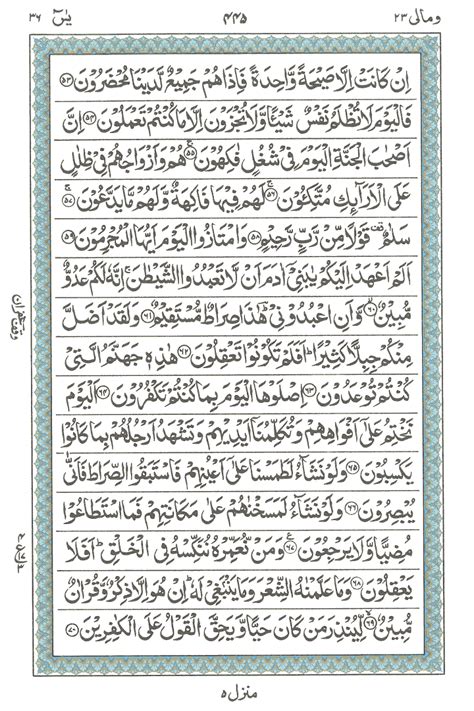 ومالی ۲۳ ۴۴۵ یٰسٓ ۳۶
اِنۡ كَانَتۡ اِلَّا صَيۡحَةً وَّاحِدَةً فَاِذَا هُمۡ جَمِيۡعٌ لَّدَيۡنَا مُحۡضَرُوۡنَ ۵۳
فَالۡيَوۡمَ لَا تُظۡلَمُ نَفۡسٌ شَيۡـًٔا وَّلَا تُجۡزَوۡنَ اِلَّا مَا كُنۡتُمۡ تَعۡمَلُوۡنَ ۵۴ اِنَّ
اَصۡحٰبَ الۡجَنَّةِ الۡيَوۡمَ فِىۡ شُغُلٍ فٰكِهُوۡنَ ۵۵ هُمۡ وَاَزۡوَاجُهُمۡ فِىۡ ظِلٰلٍ
عَلَى الۡاَرَآئِكِ مُتَّكِـُٔوۡنَ ۵۶ لَهُمۡ فِيۡهَا فَاكِهَةٌ وَّلَهُمۡ مَّا يَدَّعُوۡنَ ۵۷
سَلٰمٌ قَوۡلًا مِّنۡ رَّبٍّ رَّحِيۡمٍ ۵۸ وَامۡتَازُوا الۡيَوۡمَ اَيُّهَا الۡمُجۡرِمُوۡنَ ۵۹
اَلَمۡ اَعۡهَدۡ اِلَيۡكُمۡ يٰبَنِىۡۤ اٰدَمَ اَنۡ لَّا تَعۡبُدُوا الشَّيۡطٰنَ اِنَّهٗ لَكُمۡ عَدُوٌّ
مُّبِيۡنٌ ۶۰ وَّاَنِ اعۡبُدُوۡنِىۡ هٰذَا صِرَاطٌ مُّسۡتَقِيۡمٌ ۶۱ وَلَقَدۡ اَضَلَّ
مِنۡكُمۡ جِبِلًّا كَثِيۡرًا اَفَلَمۡ تَكُوۡنُوۡا تَعۡقِلُوۡنَ ۶۲ هٰذِهٖ جَهَنَّمُ الَّتِىۡ
كُنۡتُمۡ تُوۡعَدُوۡنَ ۶۳ اِصۡلَوۡهَا الۡيَوۡمَ بِمَا كُنۡتُمۡ تَكۡفُرُوۡنَ ۶۴ اَلۡيَوۡمَ
نَخۡتِمُ عَلٰٓى اَفۡوَاهِهِمۡ وَتُكَلِّمُنَاۤ اَيۡدِيۡهِمۡ وَتَشۡهَدُ اَرۡجُلُهُمۡ بِمَا كَانُوۡا
يَكۡسِبُوۡنَ ۶۵ وَلَوۡ نَشَآءُ لَطَمَسۡنَا عَلٰٓى اَعۡيُنِهِمۡ فَاسۡتَبَقُوا الصِّرَاطَ فَاَنّٰى
يُبۡصِرُوۡنَ ۶۶ وَلَوۡ نَشَآءُ لَمَسَخۡنٰهُمۡ عَلٰى مَكَانَتِهِمۡ فَمَا اسۡتَطَاعُوۡا
مُضِيًّا وَّلَا يَرۡجِعُوۡنَ ۶۷ وَمَنۡ نُّعَمِّرۡهُ نُنَكِّسۡهُ فِى الۡخَلۡقِ اَفَلَا
يَعۡقِلُوۡنَ ۶۸ وَمَا عَلَّمۡنٰهُ الشِّعۡرَ وَمَا يَنۡۢبَغِىۡ لَهٗ اِنۡ هُوَ اِلَّا ذِكۡرٌ وَّقُرۡاٰنٌ
مُّبِيۡنٌ ۶۹ لِّيُنۡذِرَ مَنۡ كَانَ حَيًّا وَّيَحِقَّ الۡقَوۡلُ عَلَى الۡكٰفِرِيۡنَ ۷۰
منزل ۵